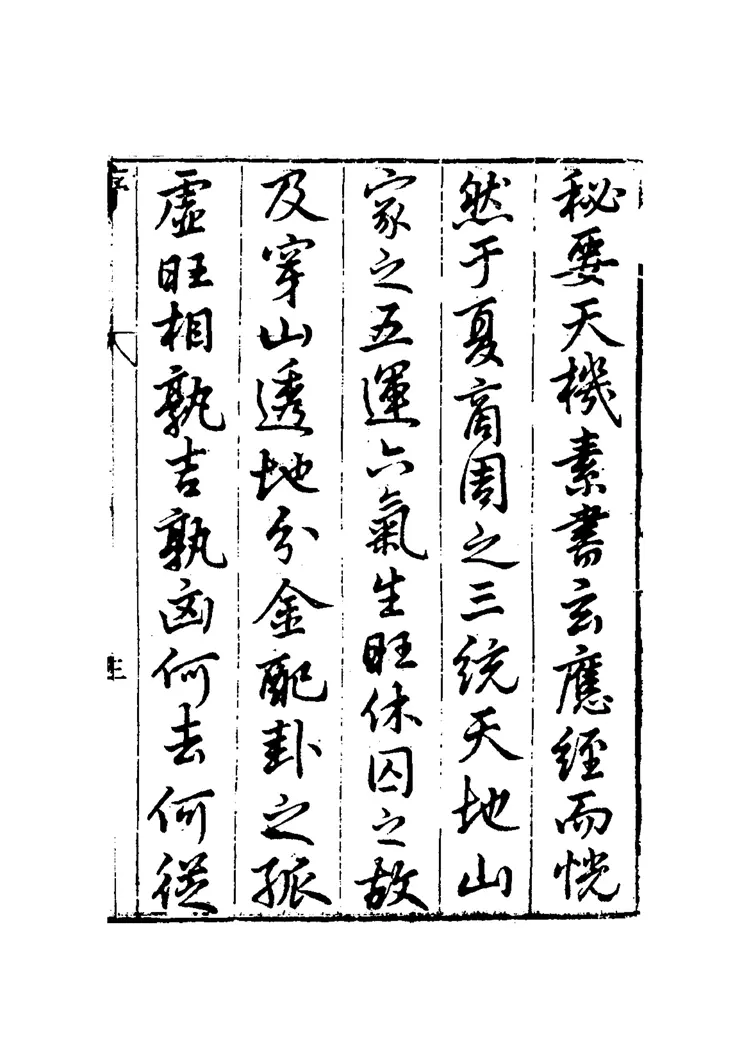 秘要天機素書玄應經而恍
然于夏商周之三統天地山
家之五運六氣生旺休囚之故
及穿山透地分金配卦之孤
虛旺相孰吉孰凶何去何從
序
八